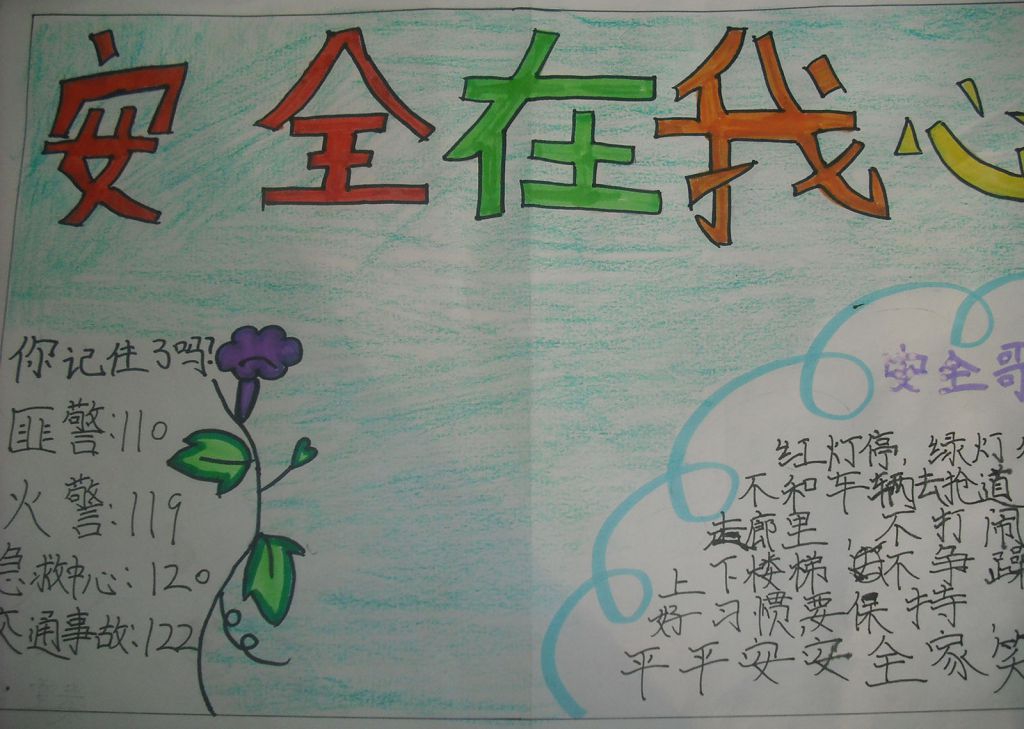 安全在我心
你记住了吗?
匪警:110
火警:119
急救中心:120
交通事故:122
安全哥
红灯停,绿灯
不和车辆去抢道
走廊里,不打闹
上下楼梯不争
好习惯要保持,
平平安安全家笑